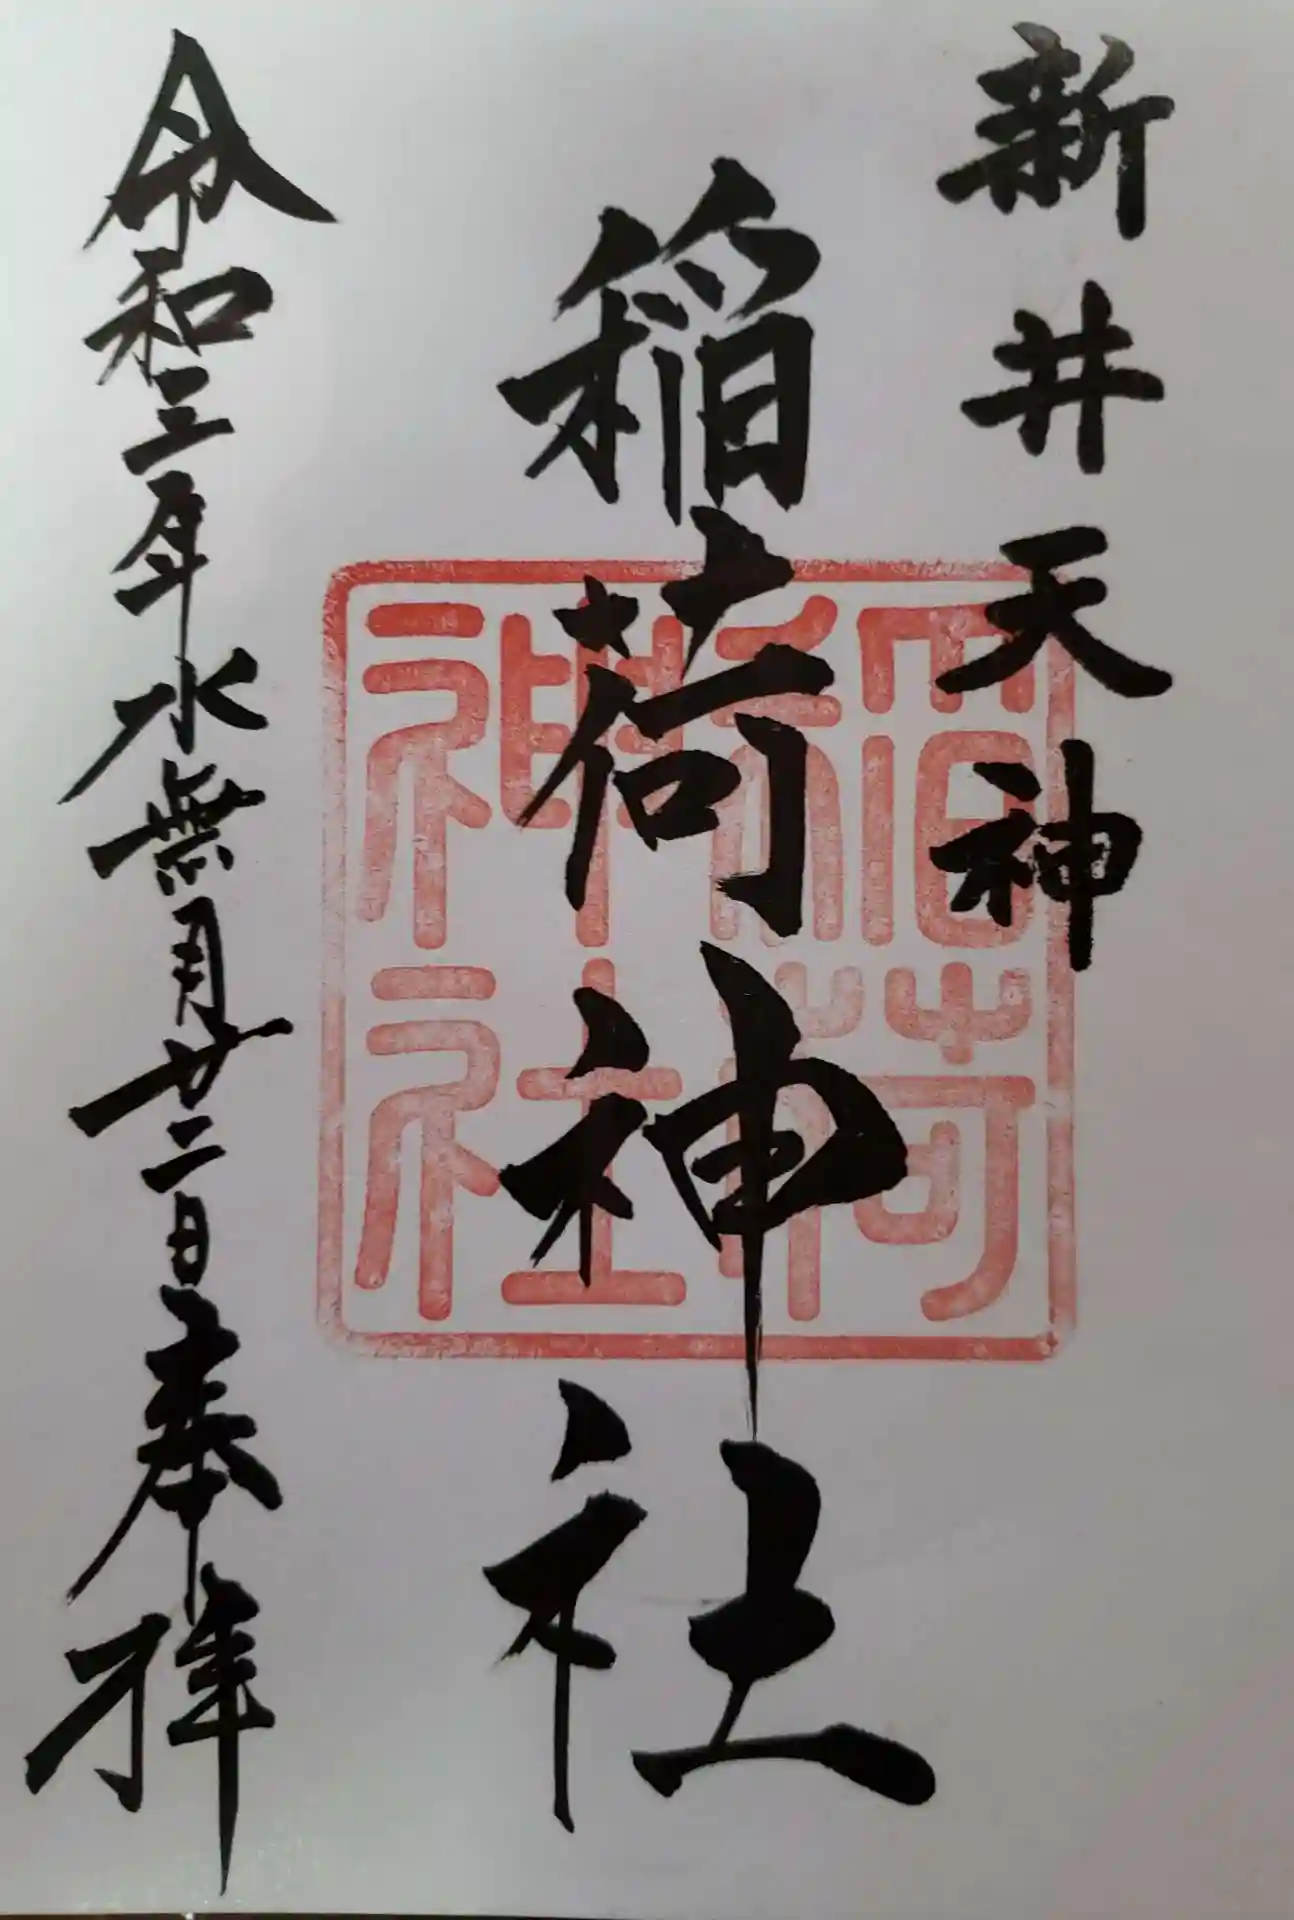 新井天神
稲荷神社
稲荷
神社
令和三年水無月廿二日奉拝